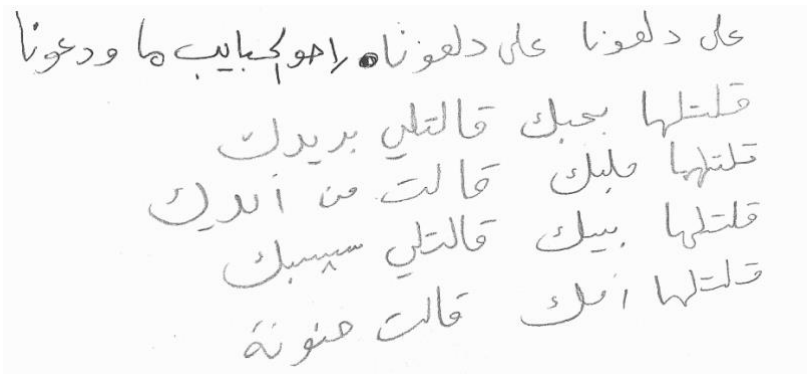 على دلعونا على دلعونا. راحو الحبايب ما ودعونا
قلتلها بحبك قالتلي بريدك
قلتلها قلبك قالت من أيديك
قلتلها بيك قالتلي سيبك
قلتلها أمك قالت حنونة